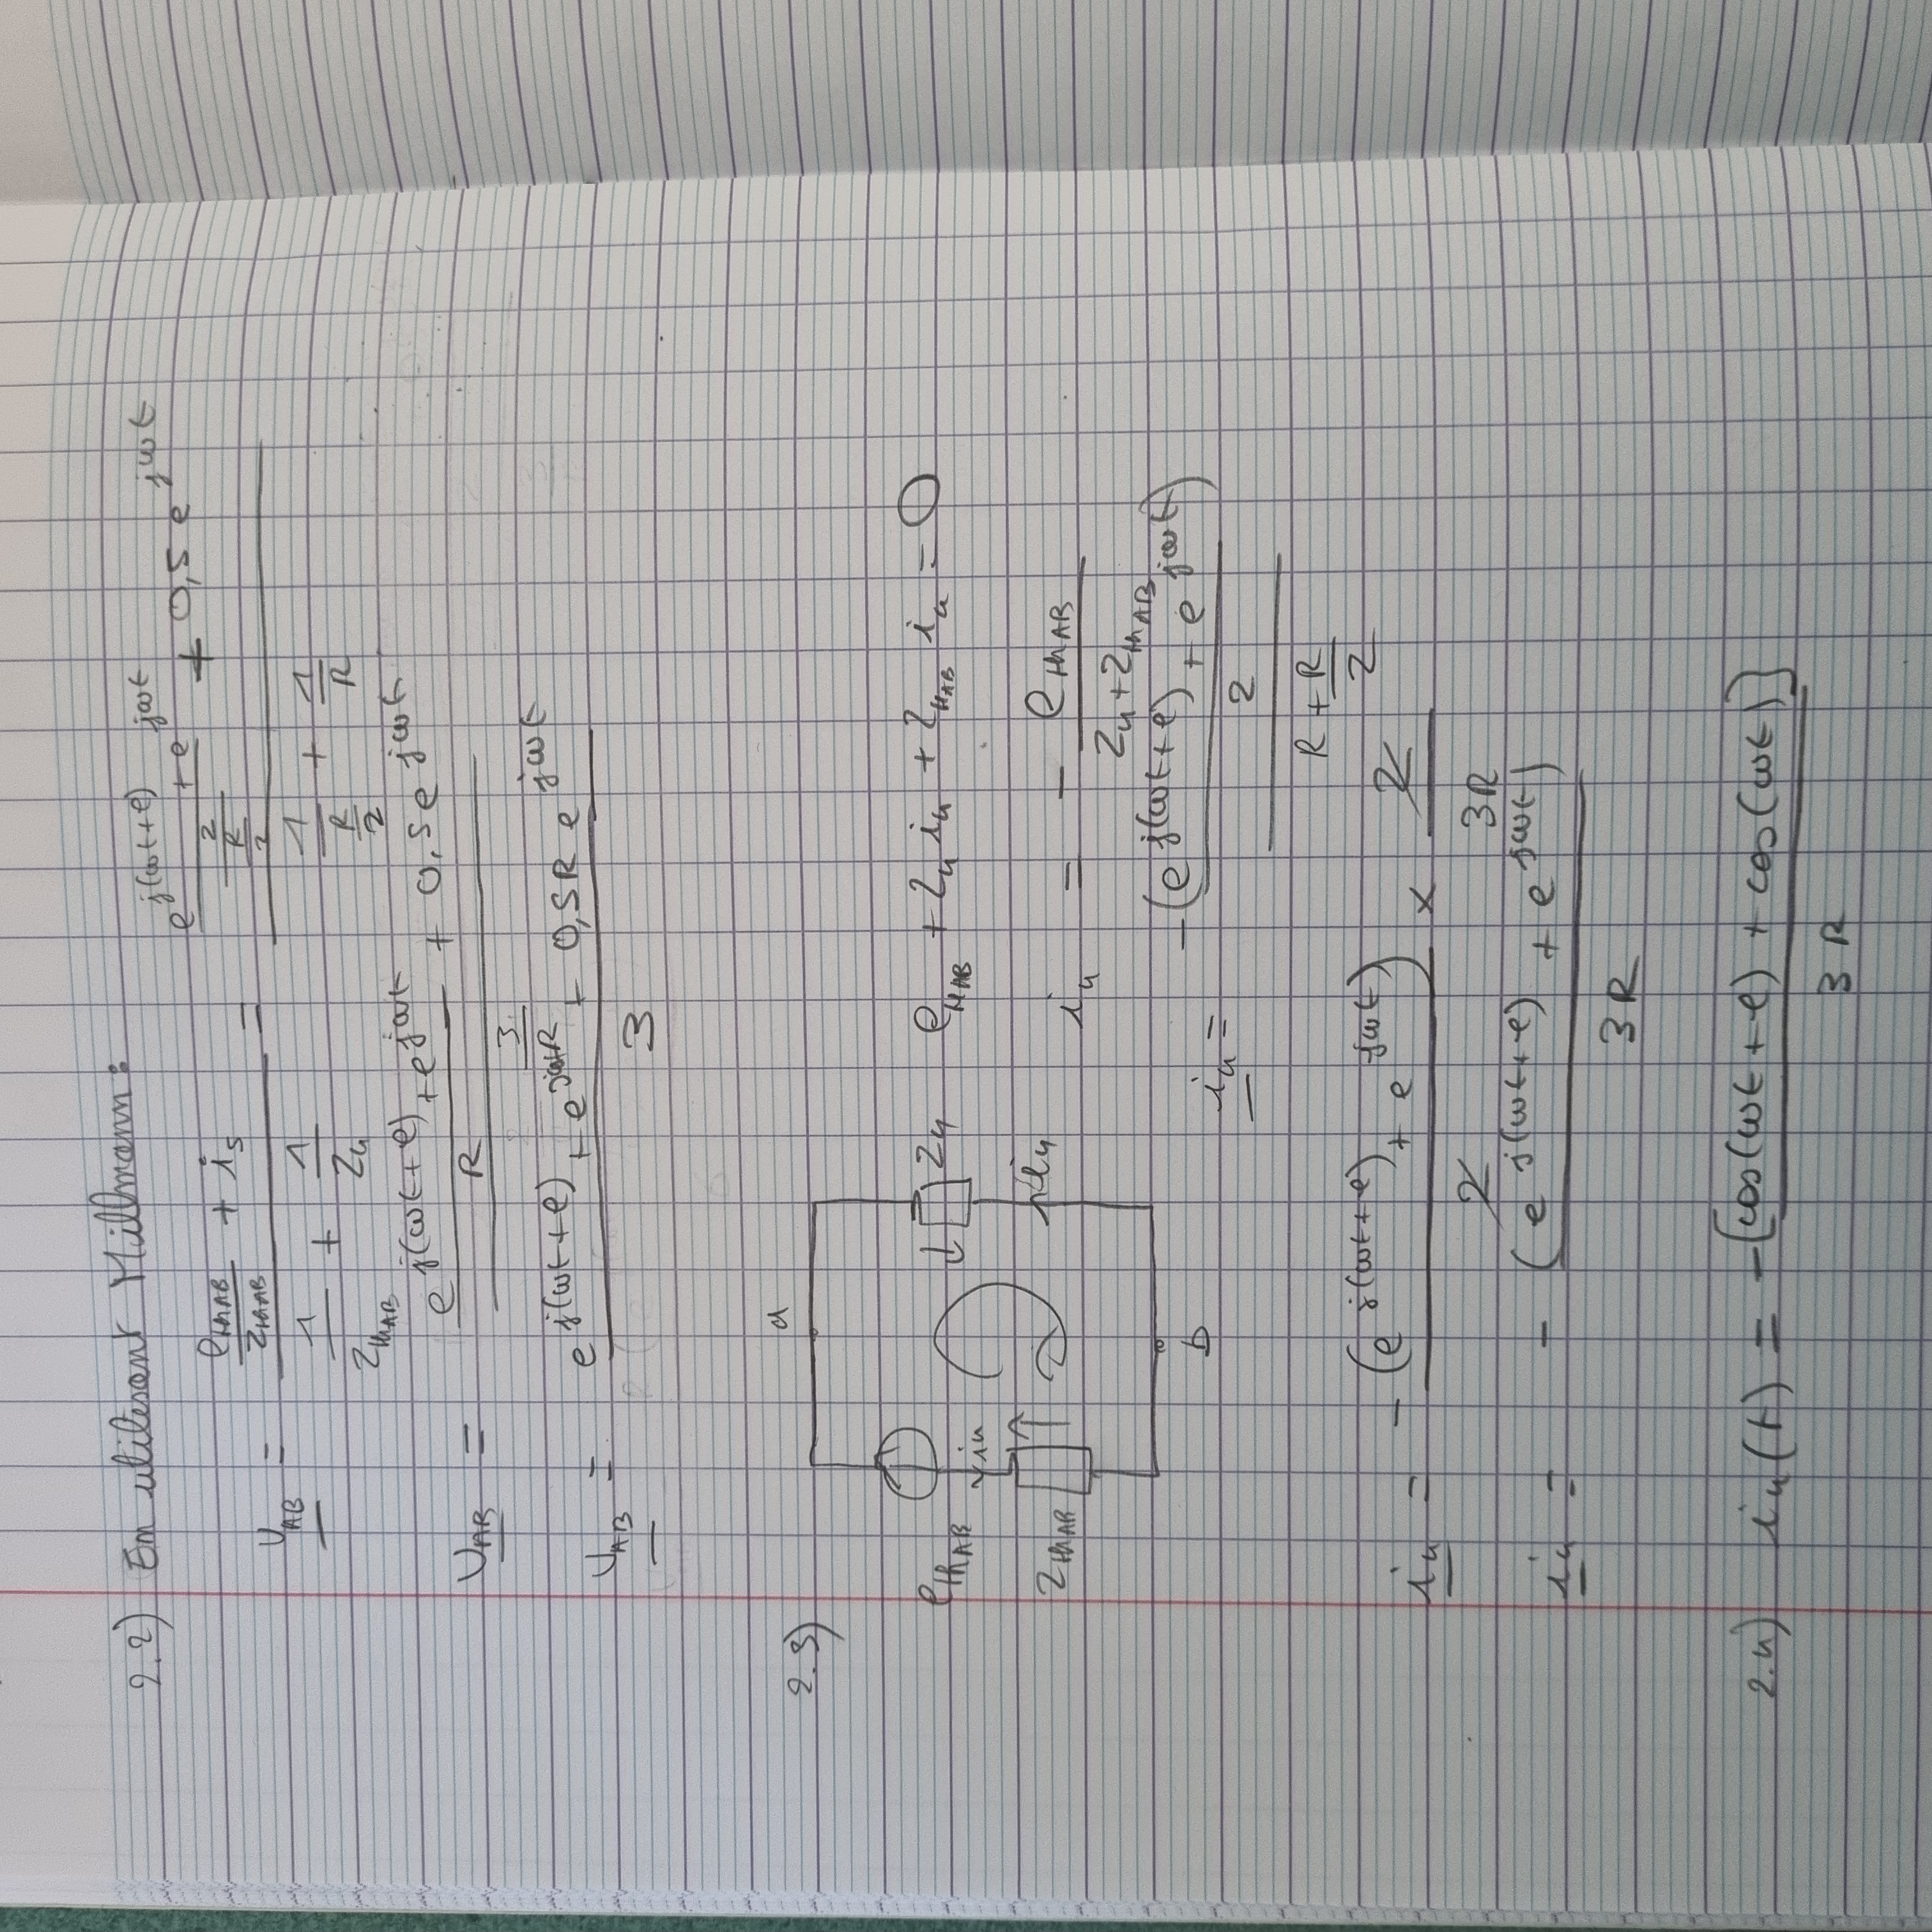 2.2) En utilisant Millmann:
U_AB = (e_thAB/Z_thAB + i_s) / (1/Z_thAB + 1/Z_4) = ((e^j(ωt+φ) + e^jωt)/2 / (R/2) + 0,5 e^jωt) / (1/(R/2) + 1/R)
U_AB = ((e^j(ωt+φ) + e^jωt)/R + 0,5 e^jωt) / (3/R)
U_AB = (e^j(ωt+φ) + e^jωt + 0,5R e^jωt) / 3
2.3)
a
e_thAB
i_4
Z_thAB
Z_4
i_4
b
e_thAB + Z_4 i_4 + Z_thAB i_4 = 0
i_4 = - e_thAB / (Z_4 + Z_thAB)
i_4 = (-(e^j(ωt+φ) + e^jωt)/2) / (R + R/2)
i_4 = - (e^j(ωt+φ) + e^jωt)/2 × 2/3R
i_4 = - (e^j(ωt+φ) + e^jωt) / 3R
2.4) i_4(t) = -[cos(ωt+φ) + cos(ωt)] / 3R